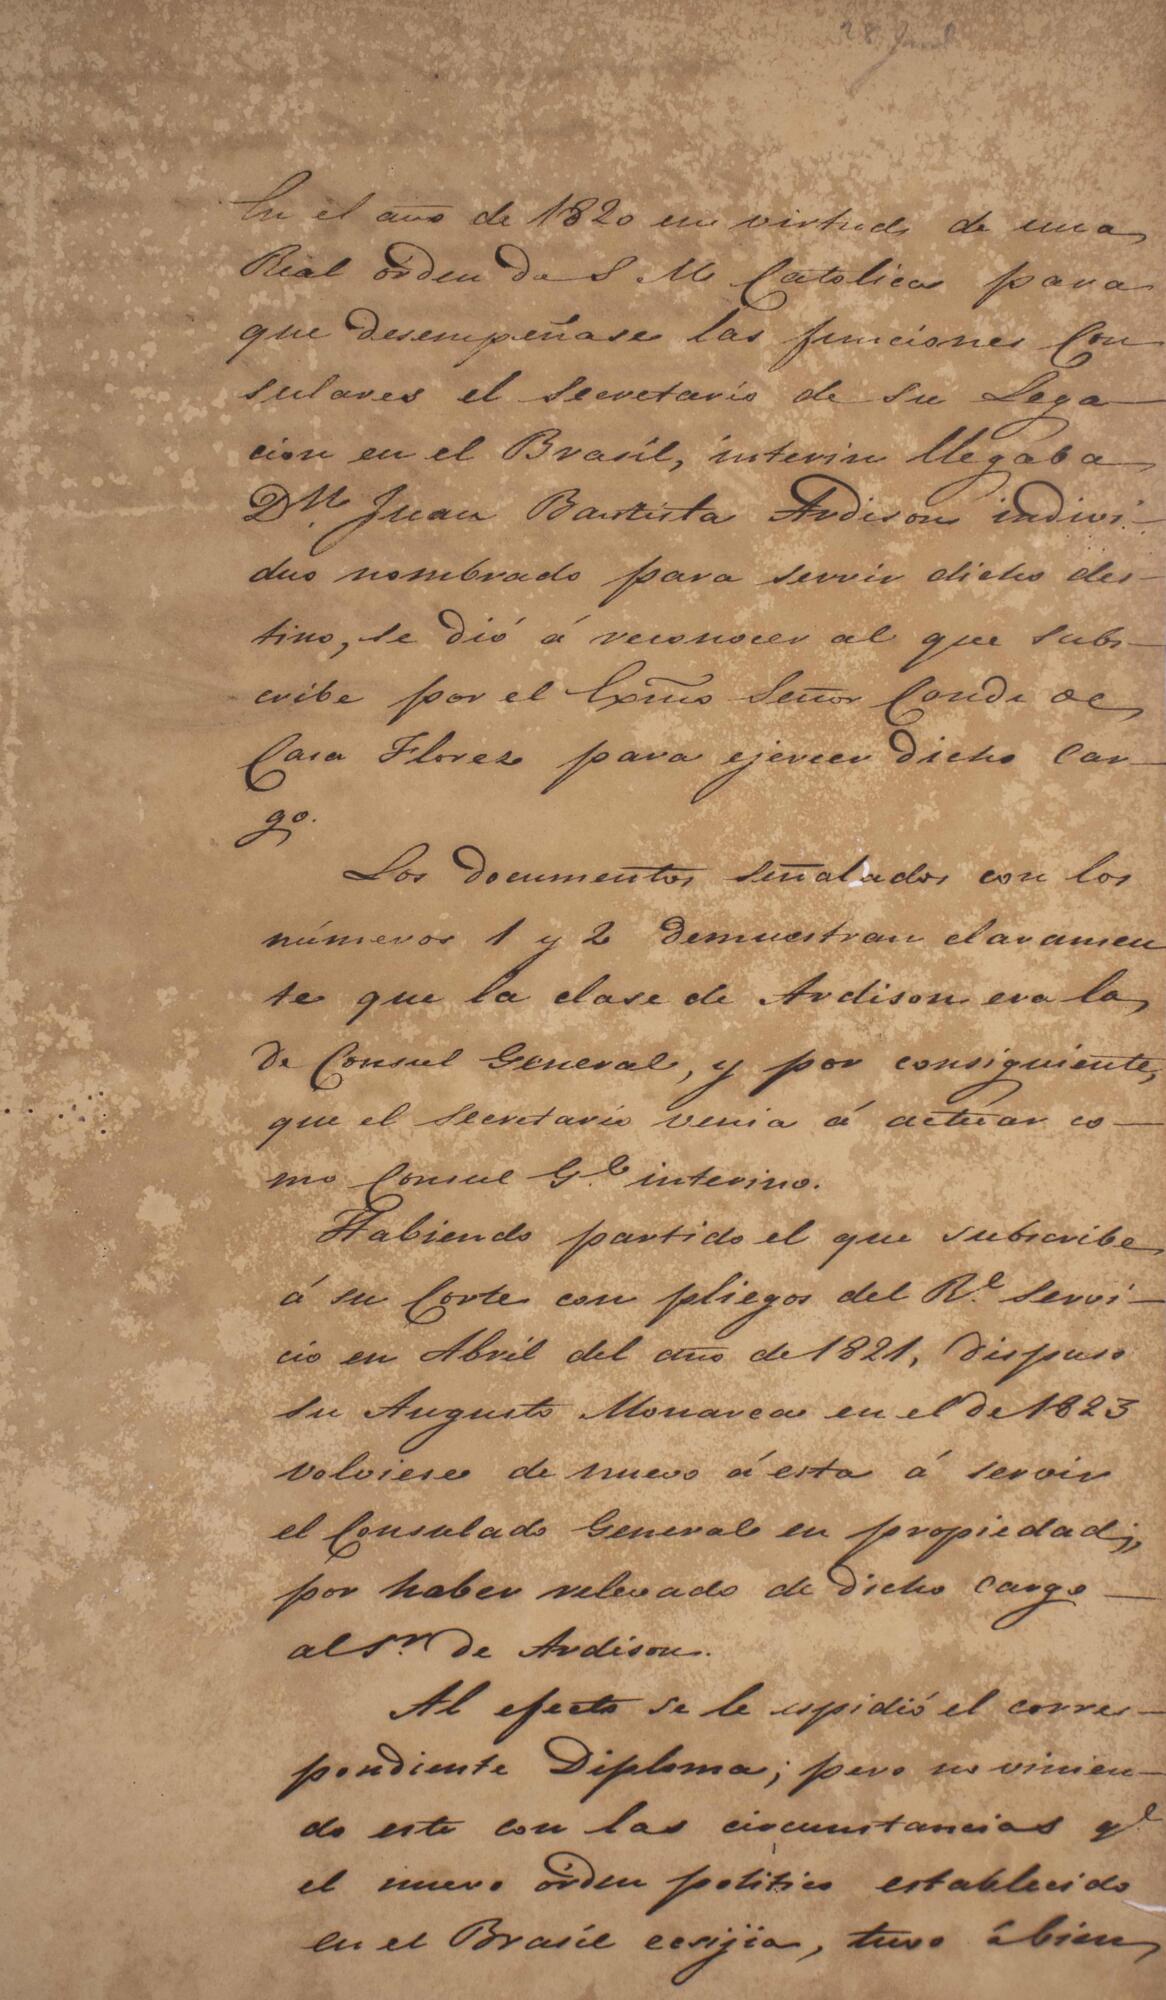 En el año de 1820 en virtud de una
Real órden de S M Catolica para
que desempeñase las funciones Con
sulares el secretario de su Lega—
cion en el Brasil, interin llegaba
Dn. Juan Bautista Ardison indivi-
duo nombrado para servir dicho des-
tino, se dió á reconocer al que subs-
cribe por el Exmo Señor Conde de
Casa Florez para ejercer dicho Car-
go.
Los documentos señalados con los
números 1 y 2 demuestran claramen
te que la clase de Ardison era la
de Consul General, y por consiguiente,
que el secretario venia á actuar co—
mo Consul Gl. interino.
Habiendo partido el que subscribe
á su Corte con pliegos del Rl. servi-
cio en Abril del año de 1821, dispuso
su Augusto Monarca en el de 1823
volviese de nuevo á esta á servir
el Consulado General en propiedad,
por haber relevado de dicho cargo—
al Sr. de Ardison.
Al efecto se le espidió el corres-
pondiente Diploma; pero no vinien-
do este con las circunstancias ql
el nuevo órden politico establecido
en el Brasil ecsijia, tuvo á bien